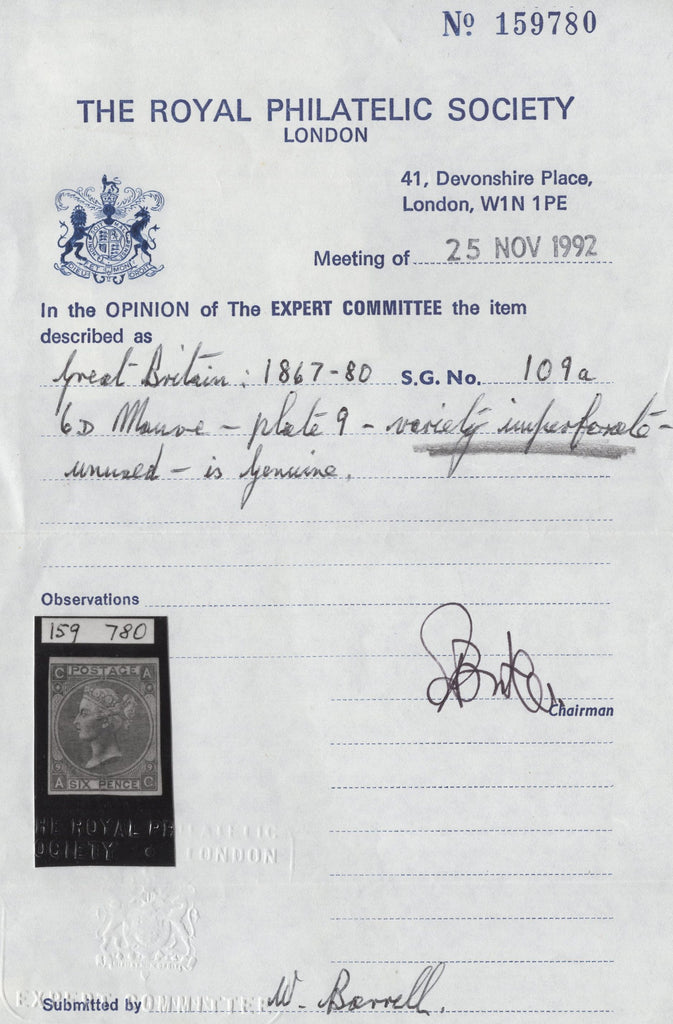 Nº 159780
THE ROYAL PHILATELIC SOCIETY
LONDON
41, Devonshire Place,
London, W1N 1PE
Meeting of 25 NOV 1992
In the OPINION of The EXPERT COMMITTEE the item
described as
Great Britain: 1867-80 S.G. No. 109a
6D Mauve - plate 9 - variety imperforate -
unused - is Genuine.
Observations
159 780
C POSTAGE A
9 9
A SIX PENCE C
Chairman
THE ROYAL PHILATELIC
SOCIETY LONDON
EXPERT COMMITTEE
Submitted by W. Barrell.